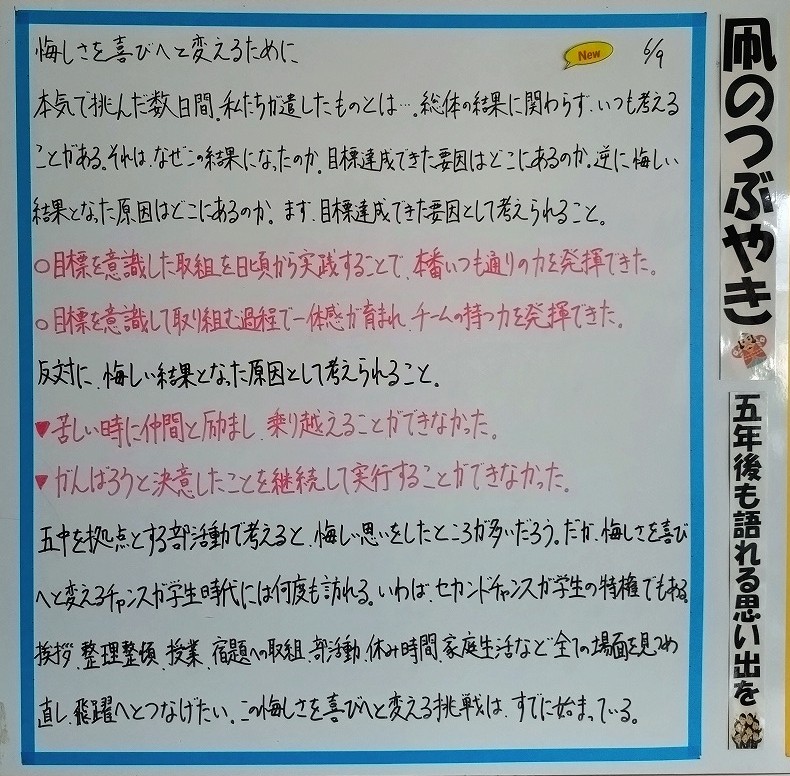 悔しさを喜びへと変えるために
New
6/9
本気で挑んだ数日間。私たちが遺したものとは…。総体の結果に関わらず、いつも考える
ことがある。それは、なぜこの結果になったのか。目標達成できた要因はどこにあるのか。逆に悔しい
結果となった原因はどこにあるのか。まず、目標達成できた要因として考えられること。
○目標を意識した取組を日頃から実践することで、本番いつも通りの力を発揮できた。
○目標を意識して取り組む過程で一体感が育まれ、チームの持つ力を発揮できた。
反対に、悔しい結果となった原因として考えられること。
▼苦しい時に仲間と励まし、乗り越えることができなかった。
▼がんばろうと決意したことを継続して実行することができなかった。
五中を拠点とする部活動で考えると、悔しい思いをしたところが多いだろう。だが、悔しさを喜び
へと変えるチャンスが学生時代には何度も訪れる。いわば、セカンドチャンスが学生の特権でもある。
挨拶、整理整頓、授業、宿題への取組、部活動、休み時間、家庭生活など全ての場面を見つめ
直し、飛躍へとつなげたい。この悔しさを喜びへと変える挑戦は、すでに始まっている。
凧のつぶやき
五年後も語れる思い出を